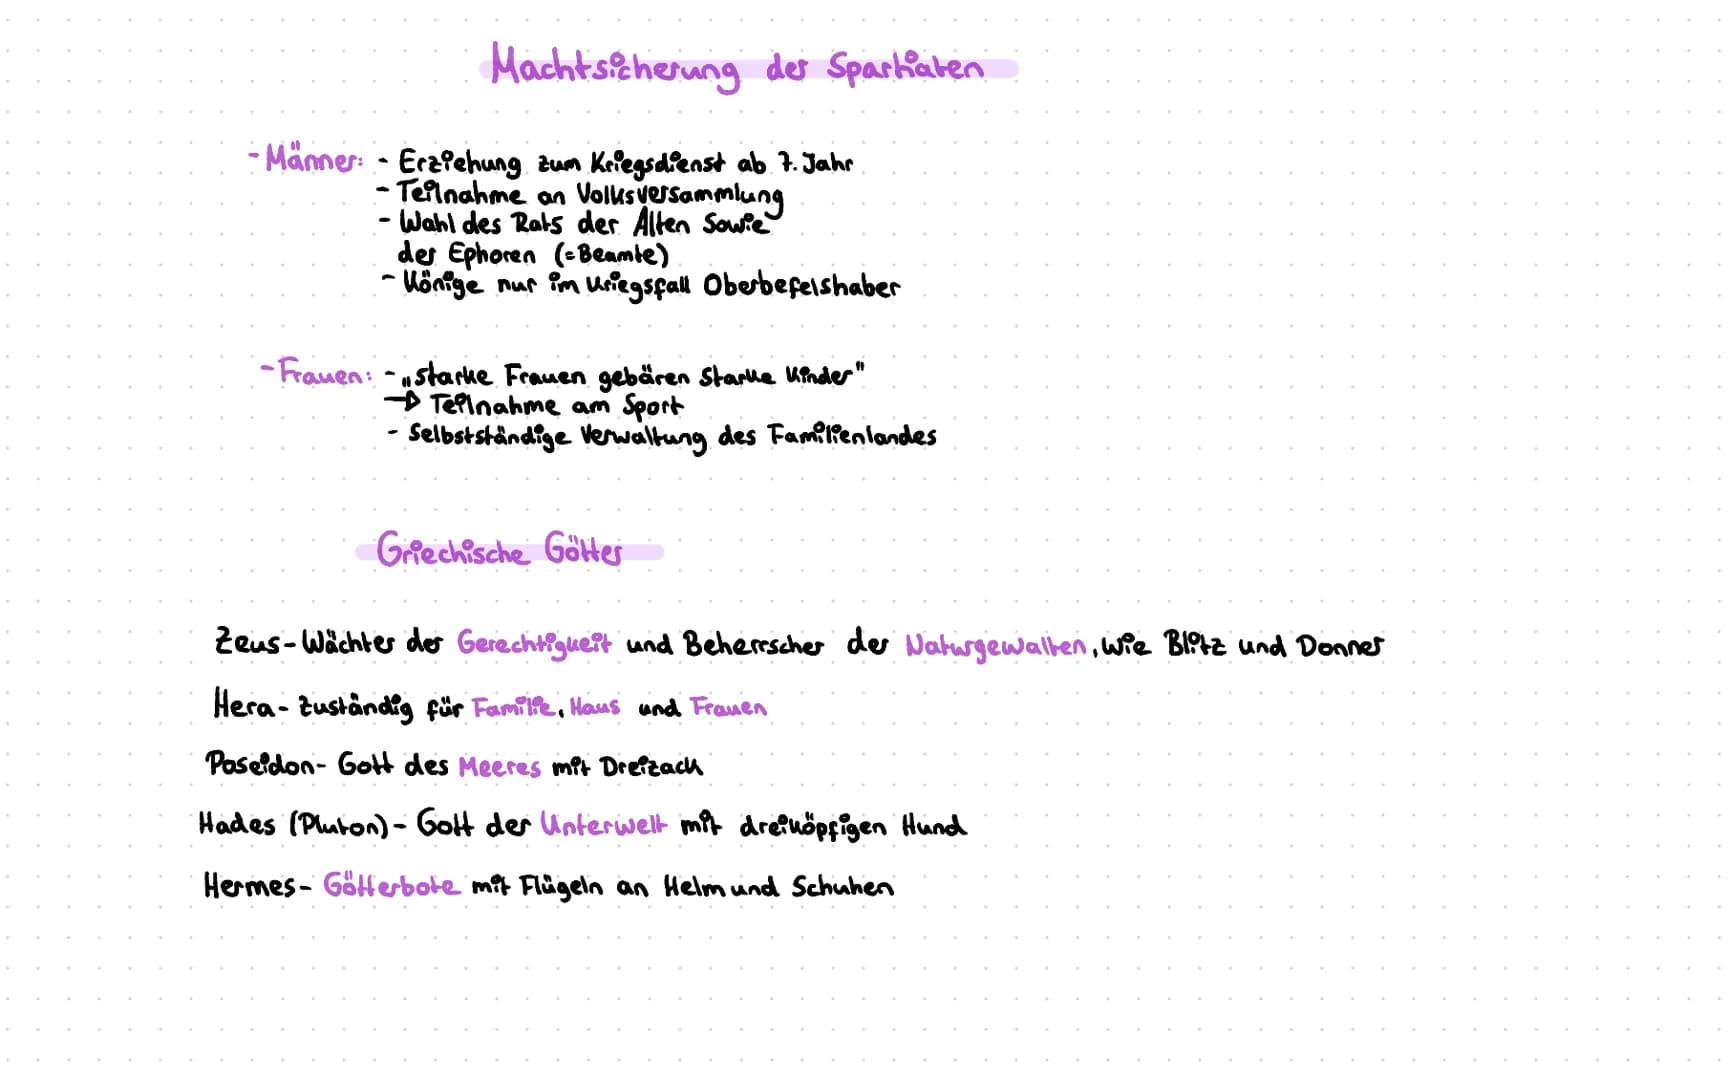 Machtsicherung der Spartiaten
- Männer: - Erziehung zum Kriegsdienst ab 7. Jahr
- Teilnahme an Volksversammlung
- Wahl des Rats der Alten sowie
der Ephoren (=Beamte)
- Könige nur im Kriegsfall Oberbefelshaber
- Frauen: - „starke Frauen gebären starke Kinder"
→ Teilnahme am Sport
- Selbstständige Verwaltung des Familienlandes
Griechische Götter
Zeus - Wächter der Gerechtigkeit und Beherrscher der Naturgewalten, wie Blitz und Donner
Hera - zuständig für Familie, Haus und Frauen
Poseidon - Gott des Meeres mit Dreizack
Hades (Pluton) - Gott der Unterwelt mit dreiköpfigen Hund
Hermes - Götterbote mit Flügeln an Helm und Schuhen